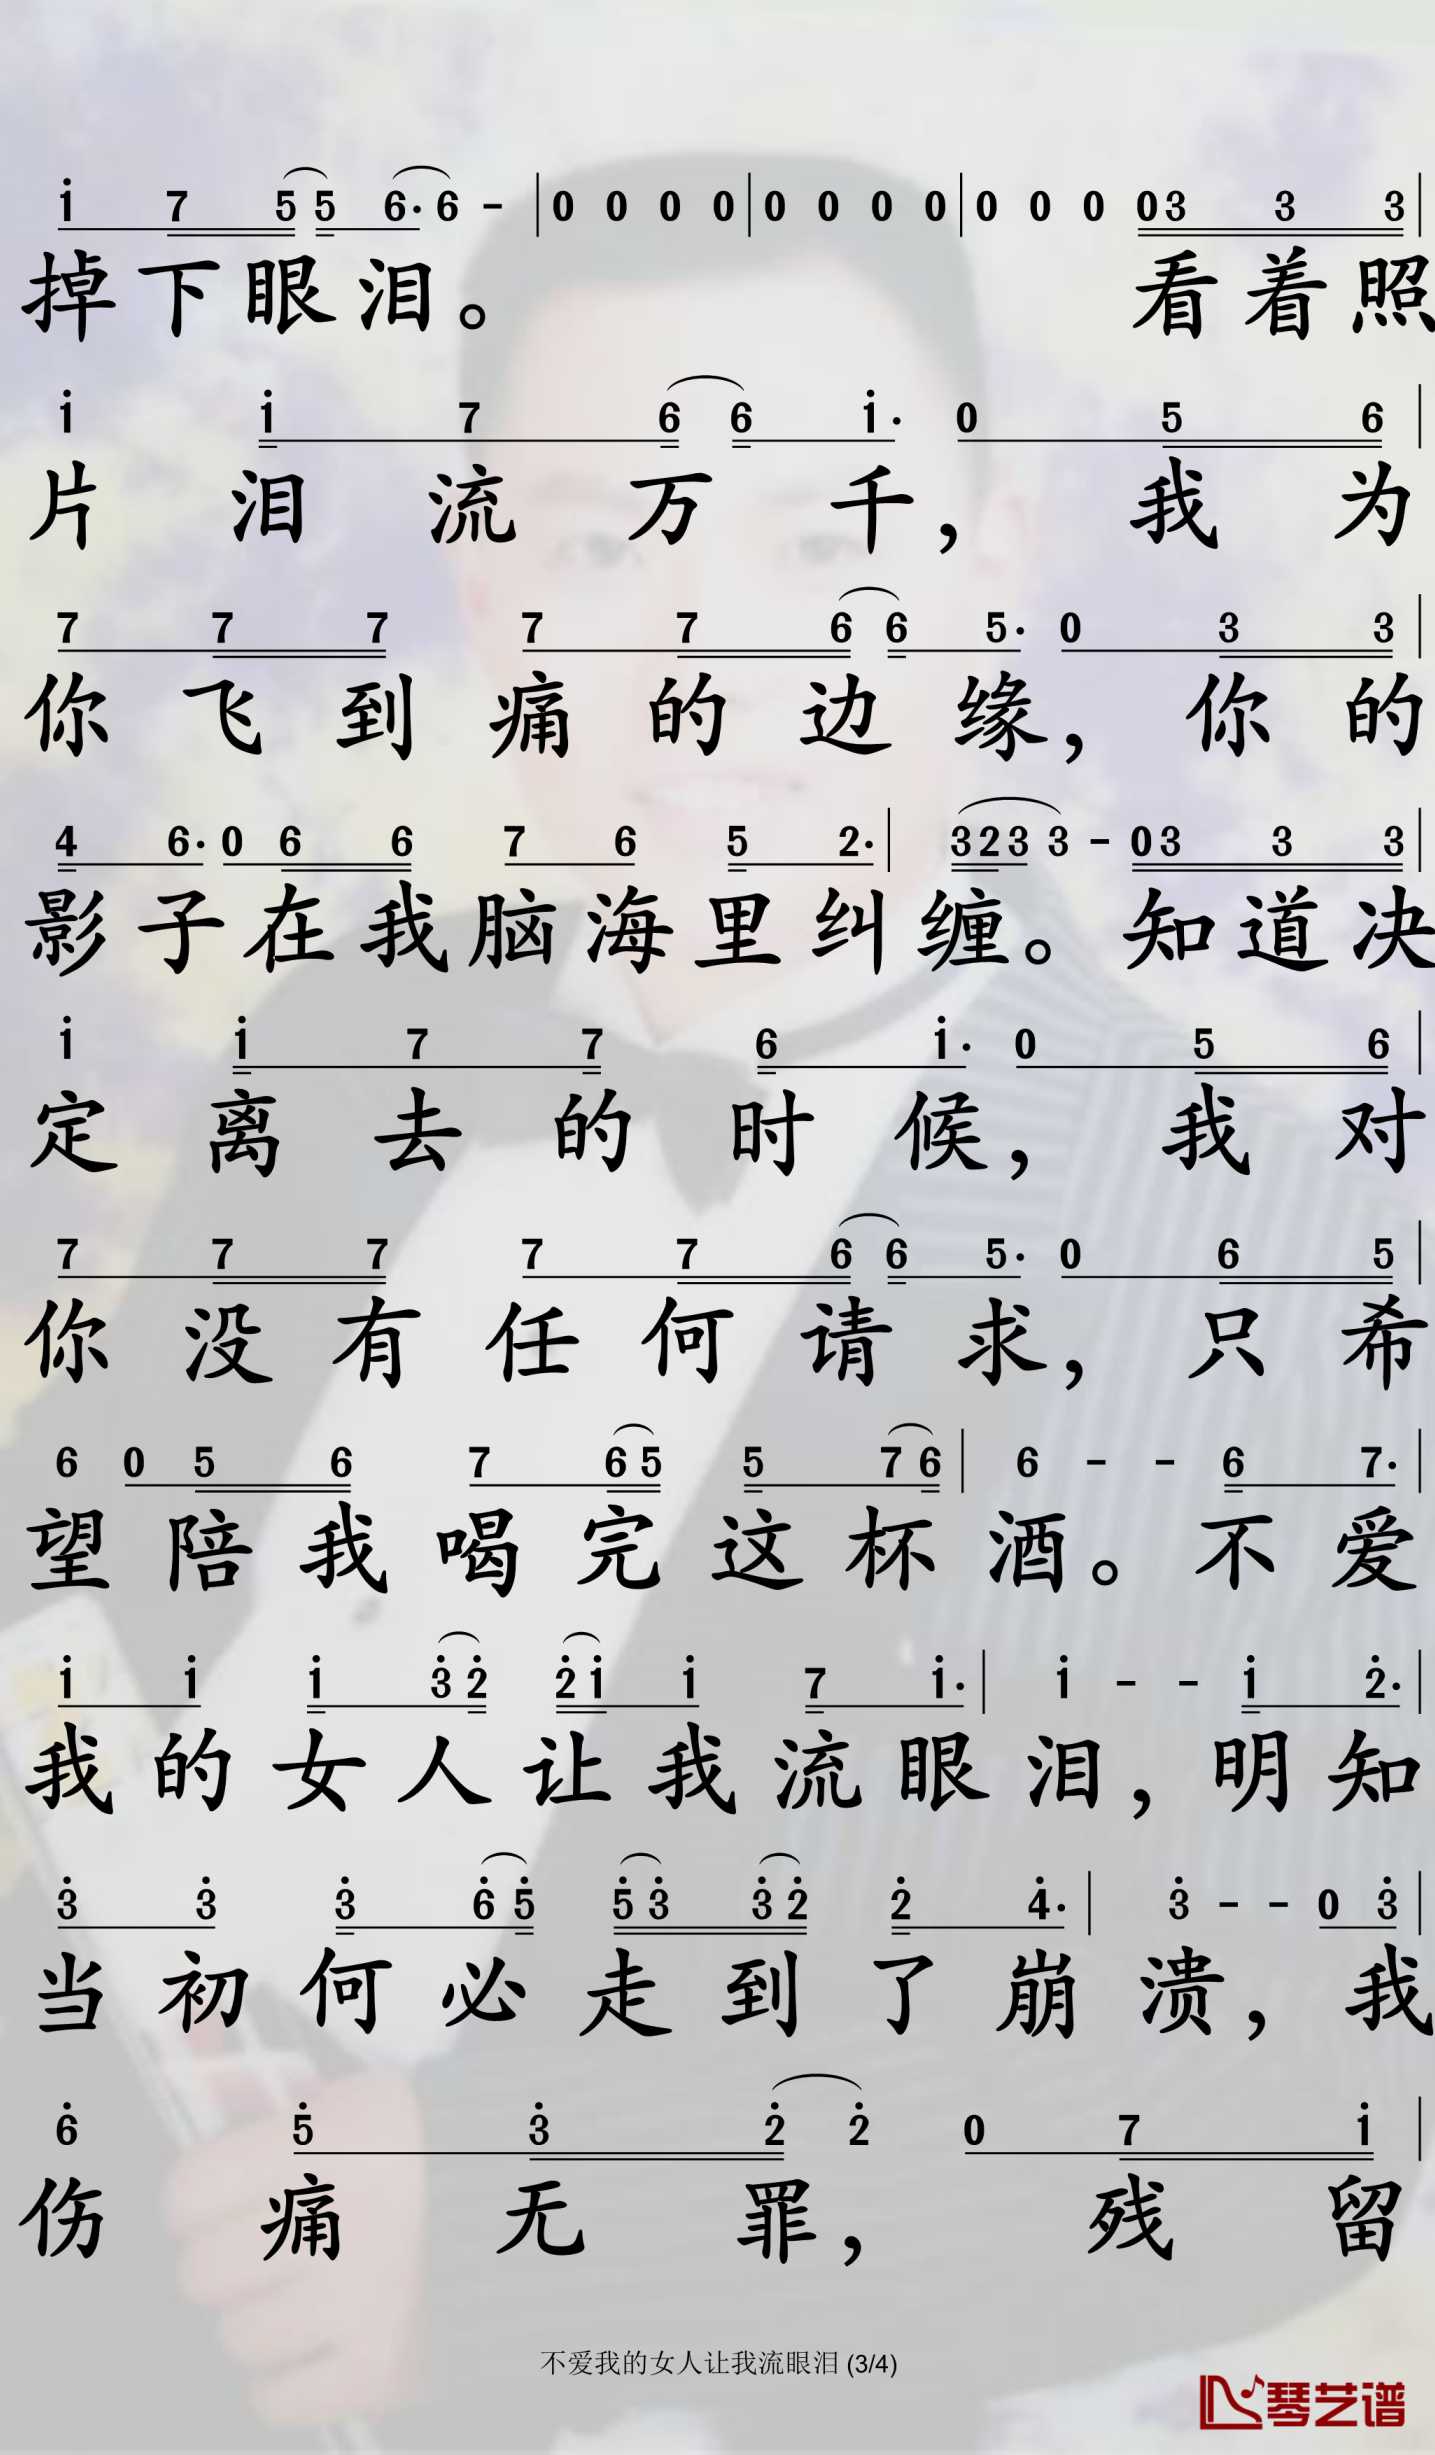 i 7 5 5 6· 6 - | 0 0 0 0 | 0 0 0 0 | 0 0 0 0 3 3 3 |
掉下眼泪。 看着照
i i 7 6 6 i· 0 5 6 |
片泪流万千，我为
7 7 7 7 7 6 6 5· 0 3 3 |
你飞到痛的边缘，你的
4 6· 0 6 6 7 6 5 2· | 3 2 3 3 - 0 3 3 3 |
影子在我脑海里纠缠。知道决
i i 7 7 6 i· 0 5 6 |
定离去的时候，我对
7 7 7 7 7 6 6 5· 0 6 5 |
你没有任何请求，只希
6 0 5 6 7 6 5 5 7 6 | 6 - - 6 7· |
望陪我喝完这杯酒。不爱
i i i 3̇ 2̇ 2̇ i i 7 i· | i - - i 2̇· |
我的女人让我流眼泪，明知
3̇ 3̇ 3̇ 6̇ 5̇ 5̇ 3̇ 3̇ 2̇ 2̇ 4̇· | 3̇ - - 0 3̇ |
当初何必走到了崩溃，我
6̇ 5̇ 3̇ 2̇ 2̇ 0 7 i |
伤痛无罪，残留
不爱我的女人让我流眼泪 (3/4)
琴艺谱